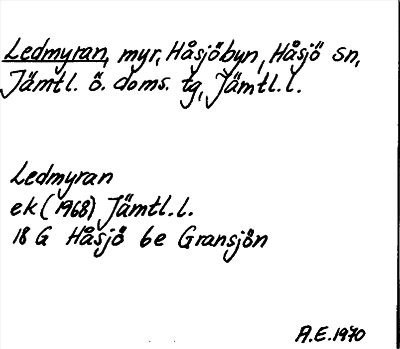 Ledmyran, myr, Håsjöbyn, Håsjö sn,
Jämtl. ö. doms. tg, Jämtl. l.
Ledmyran
ek (1968) Jämtl. l.
18 G Håsjö 6e Gransjön
A.E. 1970